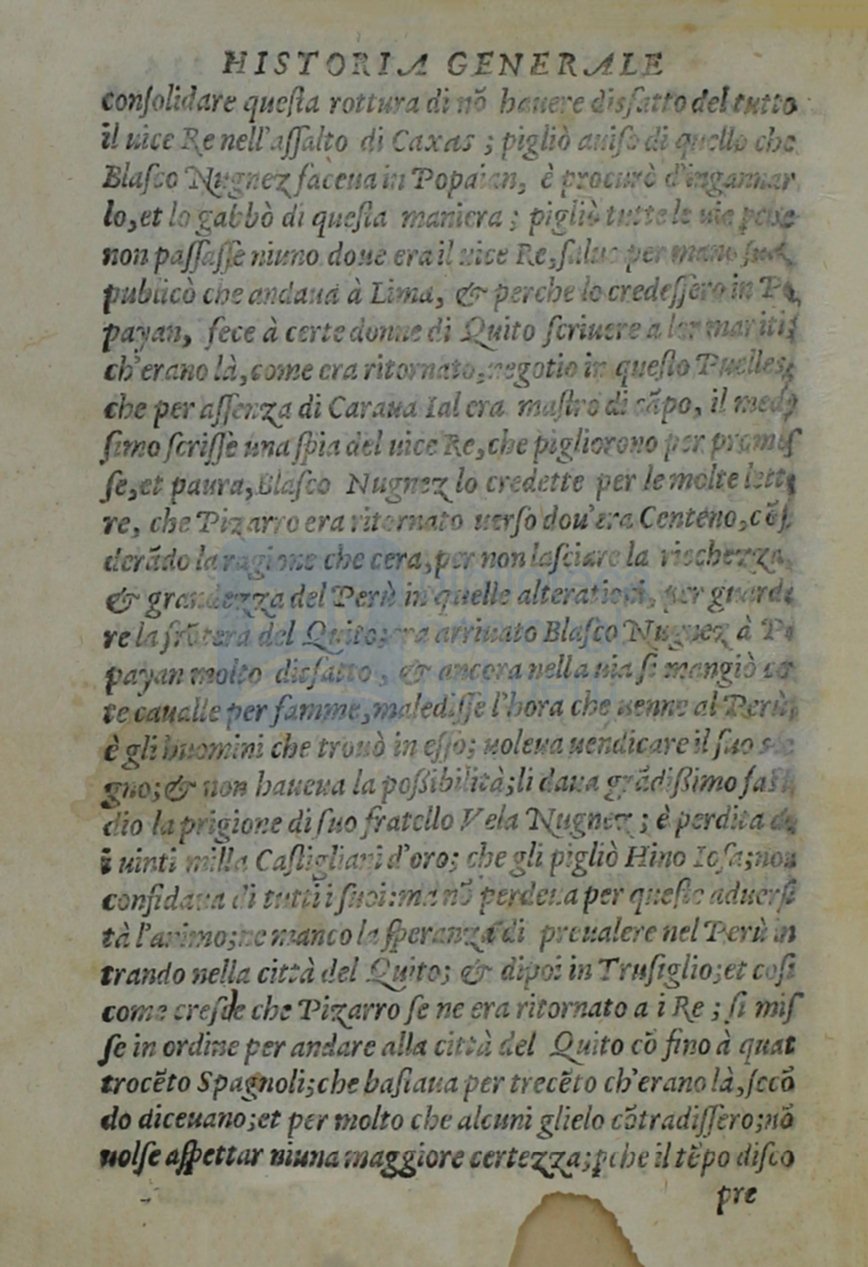 HISTORIA GENERALE
conſolidare queſta rottura di nõ hauere disfatto del tutto
il uice Re nell'aſſalto di Caxas ; pigliò auiſo di quello che
Blaſco Nugnez faceua in Popaian, è procurò d'ingannar
lo, et lo gabbò di queſta maniera ; pigliò tutte le uie
non paſſaſſe niuno doue era il uice Re, ſaluo per mano ſua,
publicò che andaua à Lima, & perche lo credeſſero in Po
payan, fece à certe donne di Quito ſcriuere a lor mariti
ch'erano là, come era ritornato, negotio in queſto Puelles,
che per aſſenza di Caraua Ial era maſtro di cãpo, il mede
ſimo ſcriſſe una ſpia del uice Re, che pigliorono per promeſ
ſe, et paura, Blaſco Nugnez lo credette per le molte lette
re, che Pizarro era ritornato uerſo dou'era Centeno,
derãdo la ragione che cera, per non laſciare la riechezza,
& grandezza del Perù in quelle alterationi, per guarda
re la frõtera del Quito; era arriuato Blaſco Nugnez à Po
payan molto disfatto, & ancora nella uia ſi mangiò
te caualle per famme, malediſſe l'hora che uenne al Perù,
è gli huomini che trouò in eſſo; uoleua uendicare il ſuo
gno; & non haueua la poßibilità; li daua grãdißimo faſti
dio la prigione di ſuo fratello Vela Nugnez ; è perdita
i uinti milla Caſtigliani d'oro; che gli pigliò Hino Ioſa; non
confidaua di tutti i ſuoi: ma nõ perdeua per queſte aduerſi
tà l'animo; ne manco la ſperanza di preualere nel Perù in
trando nella città del Quito; & dipoi in Truſiglio; et coſi
come creſde che Pizarro ſe ne era ritornato a i Re ; ſi miſ
ſe in ordine per andare alla città del Quito cõ fino à quat
trocẽto Spagnoli; che baſtaua per trecẽto ch'erano là, ſecõ
do diceuano; et per molto che alcuni glielo cõtradiſſero; nõ
uolſe aſpettar niuna maggiore certezza; pche il tẽpo diſco
pre